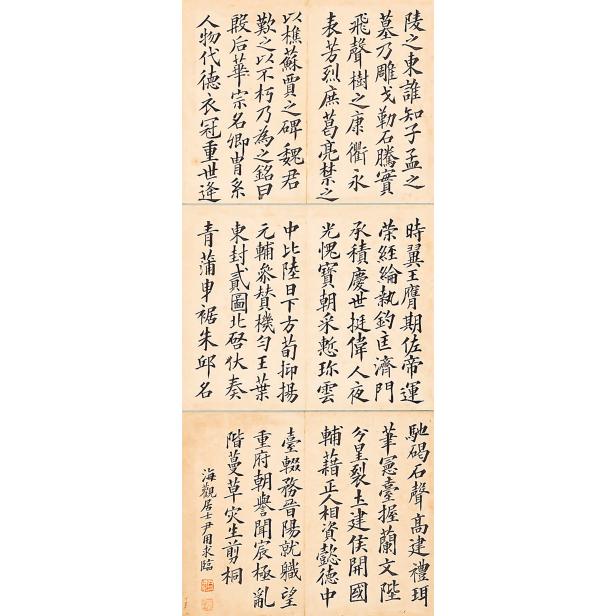 陵之東誰知子孟之
墓乃雕戈勒石騰實
飛聲樹之康衢永
表芳烈庶葛亮禁之
以樵蘇賈之碑魏君
歎之以不朽乃為之銘曰
殷后華宗名卿胄系
人物代德衣冠重世逢
時翼王膺期佐帝運
榮經綸執鈞匡濟門
承積慶世挺偉人夜
光愧寶朝采慙珎雲
中比陸日下方荀抑揚
元輔參贊機勻王葉
東封貳圖北啓伏奏
青蒲申裾朱邱名
馳碣石聲高建禮珥
筆憲臺握蘭文陛
分星裂土建侯開國
輔藉正人相資懿德中
臺輟務晉陽就職望
重府朝譽聞宸極亂
階蔓草灾生剪桐
海觀居士尹用求臨